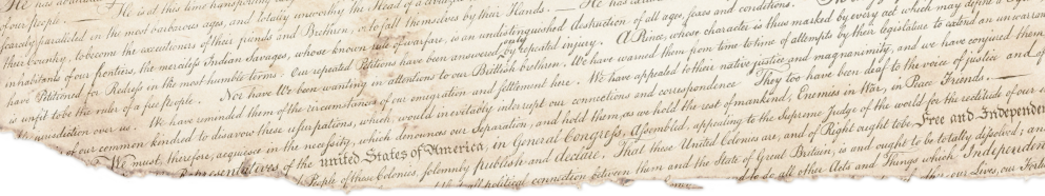 He has
of our people. — He is at this time transporting
scarcely paralleled in the most barbarous ages, and totally unworthy the Head of a civilized
their Country, to become the executioners of their friends and Brethren, or to fall themselves by their Hands. — He has
inhabitants of our frontiers, the merciless Indian Savages, whose known rule of warfare, is an undistinguished destruction of all ages, sexes and conditions.
have Petitioned for Redress in the most humble terms: Our repeated Petitions have been answered only by repeated injury. A Prince, whose character is thus marked by every act which may define a
is unfit to be the ruler of a free people. Nor have We been wanting in attentions to our Brittish brethren. We have warned them from time to time of attempts by their legislature to extend an unwarran
jurisdiction over us. We have reminded them of the circumstances of our emigration and settlement here. We have appealed to their native justice and magnanimity, and we have conjured them
of our common kindred to disavow these usurpations, which, would inevitably interrupt our connections and correspondence They too have been deaf to the voice of justice and of
We must, therefore, acquiesce in the necessity, which denounces our Separation, and hold them, as we hold the rest of mankind, Enemies in War, in Peace Friends. —
Representatives of the united States of America, in General Congress, Assembled, appealing to the Supreme Judge of the world for the rectitude of our
People of these Colonies, solemnly publish and declare, That these United Colonies are, and of Right ought to be Free and Independen
all political connection between them and the State of Great Britain, is and ought to be totally dissolved; and
to do all other Acts and Things which Independen
our Lives, our Fort